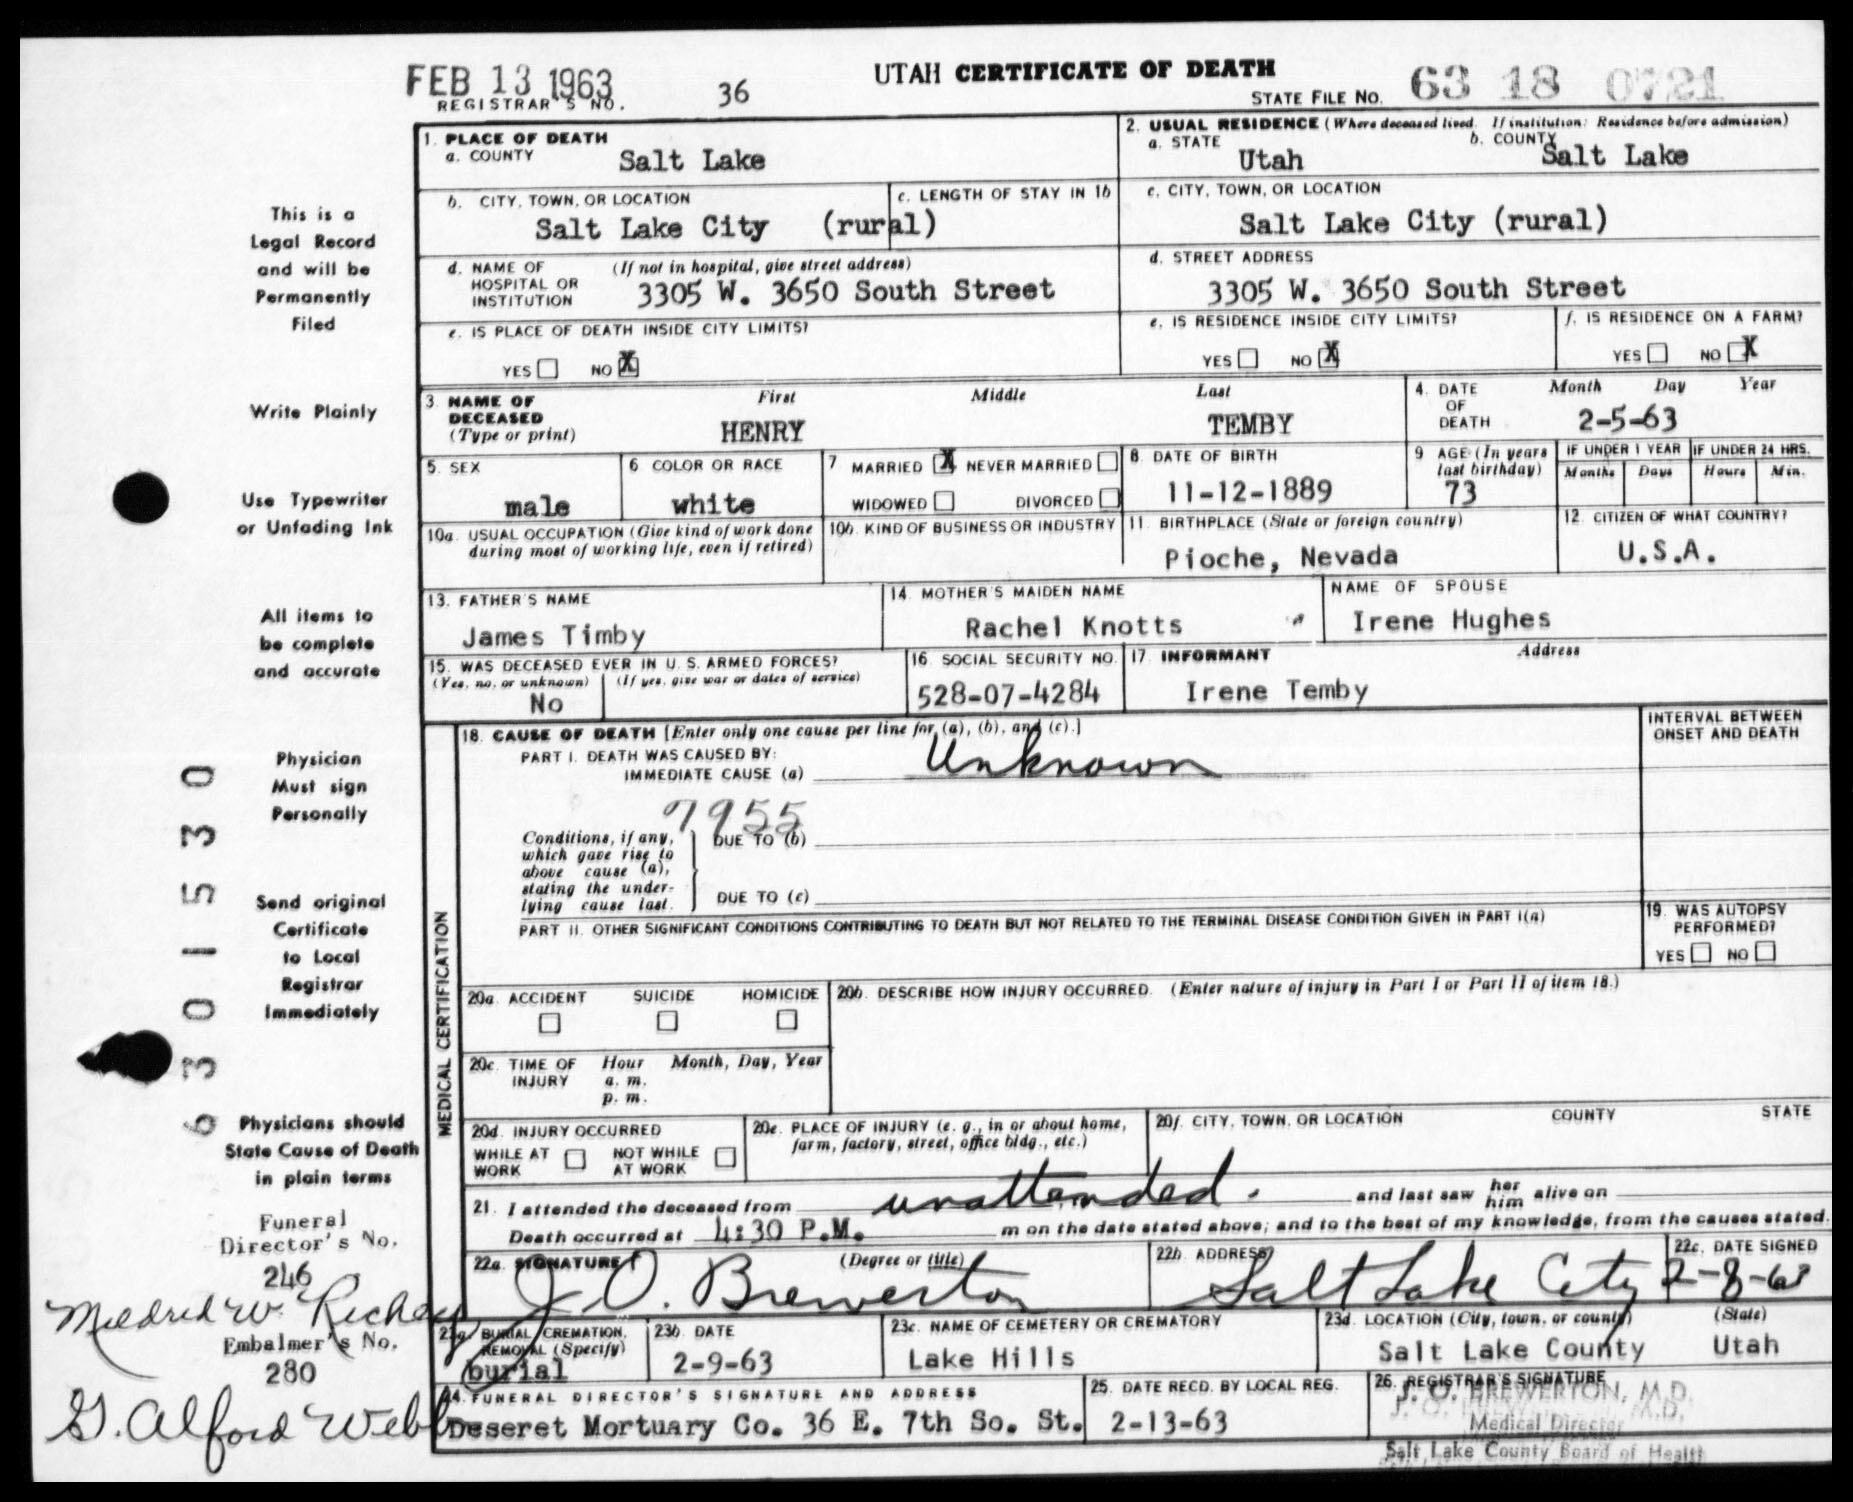 FEB 13 1963
REGISTRAR'S NO. 36
UTAH CERTIFICATE OF DEATH
STATE FILE NO. 63 18 0721
1. PLACE OF DEATH
a. COUNTY Salt Lake
2. USUAL RESIDENCE (Where deceased lived. If institution: Residence before admission)
a. STATE Utah
b. COUNTY Salt Lake
b. CITY, TOWN, OR LOCATION Salt Lake City (rural)
c. LENGTH OF STAY IN 1b
c. CITY, TOWN, OR LOCATION Salt Lake City (rural)
d. NAME OF HOSPITAL OR INSTITUTION (If not in hospital, give street address) 3305 W. 3650 South Street
d. STREET ADDRESS 3305 W. 3650 South Street
e. IS PLACE OF DEATH INSIDE CITY LIMITS?
YES NO X
e. IS RESIDENCE INSIDE CITY LIMITS?
YES NO X
f. IS RESIDENCE ON A FARM?
YES NO X
3. NAME OF DECEASED (Type or print)
First Middle Last
HENRY TEMBY
4. DATE OF DEATH Month Day Year
2-5-63
5. SEX male
6 COLOR OR RACE white
7 MARRIED X NEVER MARRIED
WIDOWED DIVORCED
8. DATE OF BIRTH 11-12-1889
9 AGE (In years last birthday) 73
IF UNDER 1 YEAR Months Days
IF UNDER 24 HRS. Hours Min.
10a. USUAL OCCUPATION (Give kind of work done during most of working life, even if retired)
10b. KIND OF BUSINESS OR INDUSTRY
11. BIRTHPLACE (State or foreign country) Pioche, Nevada
12. CITIZEN OF WHAT COUNTRY? U.S.A.
13. FATHER'S NAME James Timby
14. MOTHER'S MAIDEN NAME Rachel Knotts
NAME OF SPOUSE Irene Hughes
15. WAS DECEASED EVER IN U. S. ARMED FORCES?
(Yes, no, or unknown) (If yes, give war or dates of service)
No
16. SOCIAL SECURITY NO. 528-07-4284
17. INFORMANT Address
Irene Temby
MEDICAL CERTIFICATION
18. CAUSE OF DEATH [Enter only one cause per line for (a), (b), and (c).]
PART I. DEATH WAS CAUSED BY:
IMMEDIATE CAUSE (a) Unknown
INTERVAL BETWEEN ONSET AND DEATH
7955
Conditions, if any, which gave rise to above cause (a), stating the under-lying cause last.
DUE TO (b)
DUE TO (c)
PART II. OTHER SIGNIFICANT CONDITIONS CONTRIBUTING TO DEATH BUT NOT RELATED TO THE TERMINAL DISEASE CONDITION GIVEN IN PART I(a)
19. WAS AUTOPSY PERFORMED?
YES NO
20a. ACCIDENT SUICIDE HOMICIDE
20b. DESCRIBE HOW INJURY OCCURRED. (Enter nature of injury in Part I or Part II of item 18.)
20c. TIME OF INJURY Hour Month, Day, Year
a. m.
p. m.
20d. INJURY OCCURRED
WHILE AT WORK NOT WHILE AT WORK
20e. PLACE OF INJURY (e. g., in or about home, farm, factory, street, office bldg., etc.)
20f. CITY, TOWN, OR LOCATION COUNTY STATE
21. I attended the deceased from unattended. and last saw her him alive on
Death occurred at 4:30 P.M. m on the date stated above; and to the best of my knowledge, from the causes stated.
22a. SIGNATURE (Degree or title)
J. O. Brewerton
22b. ADDRESS Salt Lake City
22c. DATE SIGNED 2-8-63
23a BURIAL, CREMATION, REMOVAL (Specify) burial
23b. DATE 2-9-63
23c. NAME OF CEMETERY OR CREMATORY Lake Hills
23d. LOCATION (City, town, or county) (State)
Salt Lake County Utah
24. FUNERAL DIRECTOR'S SIGNATURE AND ADDRESS
Deseret Mortuary Co. 36 E. 7th So. St.
25. DATE RECD. BY LOCAL REG. 2-13-63
26. REGISTRAR'S SIGNATURE
J. O. BREWERTON, M.D.
Medical Director
Salt Lake County Board of Health
This is a
Legal Record
and will be
Permanently
Filed
Write Plainly
Use Typewriter
or Unfading Ink
All items to
be complete
and accurate
Physician
Must sign
Personally
Send original
Certificate
to Local
Registrar
Immediately
Physicians should
State Cause of Death
in plain terms
Funeral
Director's No.
246
Mildred W. Richey
Embalmer's No.
280
G. Alford Webb
6 3 0 1 5 3 0